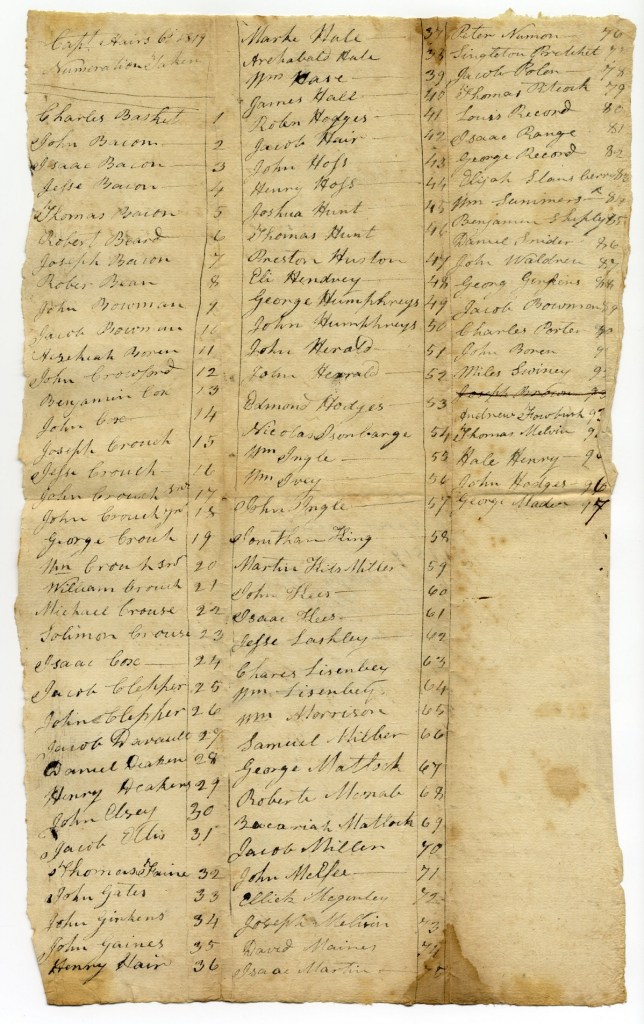 Capt. Hairs Co. 1819
Numeration Taken
Charles Basket 1
John Bacom 2
Isaac Bacon 3
Jesse Bacon 4
Thomas Bacon 5
Robert Beard 6
Joseph Bacon 7
Rober Bean 8
John Bowman 9
Jacob Bowman 10
Hezehiah Boren 11
John Crowford 12
Benjamin Cox 13
John Cox 14
Joseph Crouch 15
Jesse Crouch 16
John Crouch snr 17
John Crouch jnr 18
George Crouch 19
Wm Crouch snr 20
William Crouch 21
Michael Crouse 22
Solimon Crouse 23
Isaac Cox 24
Jacob Clepper 25
John Clepper 26
Jacob Davault 27
Daniel Deaken 28
Henry Deakens 29
John Elsey 30
Jacob Ellis 31
Thomas Faine 32
John Gates 33
John Girkens 34
John Gaines 35
Henry Hair 36
Marke Hale 37
Archabald Hale 38
Wm Hase 39
James Hall 40
Robin Hodges 41
Jacob Hair 42
John Hoss 43
Henry Hoss 44
Joshua Hunt 45
Thomas Hunt 46
Preston Huston 47
Eli Hendrey 48
George Humphreys 49
John Humphreys 50
John Herald 51
John Herrald 52
Edmond Hodges 53
Nicolas 54
Wm Ingle 55
Wm Ivey 56
John Ingle 57
Jonithan King 58
Martin Kits Miller 59
John Kees 60
Isaac Kees 61
Jesse Lashley 62
Chares Lisenbey 63
Wm Lisenbey 64
Wm Morrison 65
Samuel Milber 66
George Matlock 67
Roberte Mcnab 68
Zacariah Matlock 69
Jacob Miller 70
John McElfee 71
Ellick 72
Joseph Melvin 73
David Maines 74
Isaac Martin 75
Peter Numon 76
Singleton Pretchet 77
Jacob Polon 78
Thomas Pecock 79
Louis Record 80
Isaac Range 81
George Record 82
Elijah 83
Wm Summers 84
Benjamin Shiply 85
Daniel Snider 86
John Waldren 87
Georg Girkins 88
Jacob Bowman 89
Charles Porter 90
John Boren 9
Miles Swiney 9
Joseph Brown
Andrew 93
Thomas Melvin 9
Hale Henry 9
John Hodges 96
George Maden 97